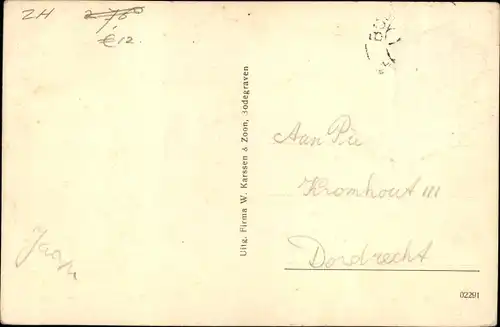 ZH
€ 12.
BO
Uitg. Firma W. Karssen & Zoon, Bodegraven
Aan Piet
Kromhout 111
Dordrecht
Jaap
02291